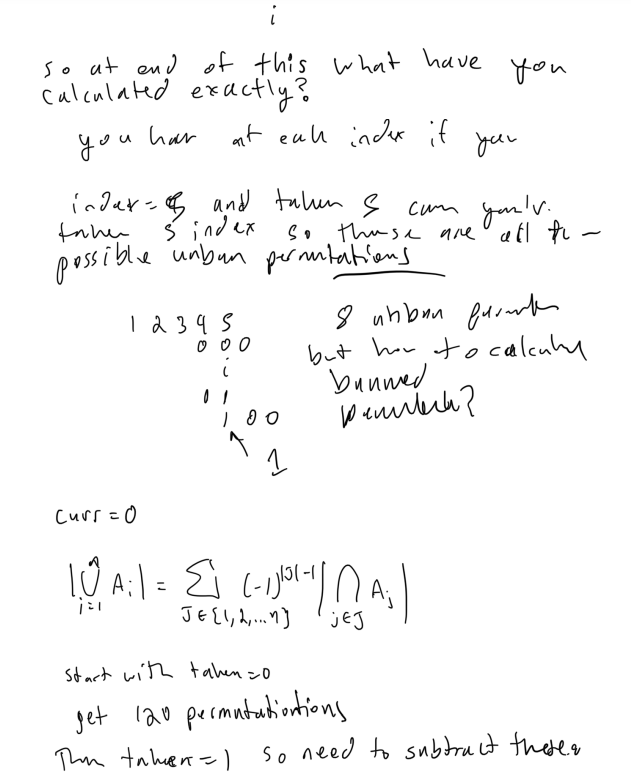 i
so at end of this what have you
calculated exactly?
you have at each index if you
index = 5 and taken 5 can you
taken 5 index so these are all the
possible unban permutations
1 2 3 4 5
0 0 0
i
0 1
1 0 0
1
8 unban
but how to calculate
banned
curr = 0
|⋃_{i=1}^{n} A_i| = Σ_{J∈{1,2,...n}} (-1)^{|J|-1} |⋂_{j∈J} A_j|
start with taken = 0
get 120 permutationtions
Then taken = 1 so need to subtract these